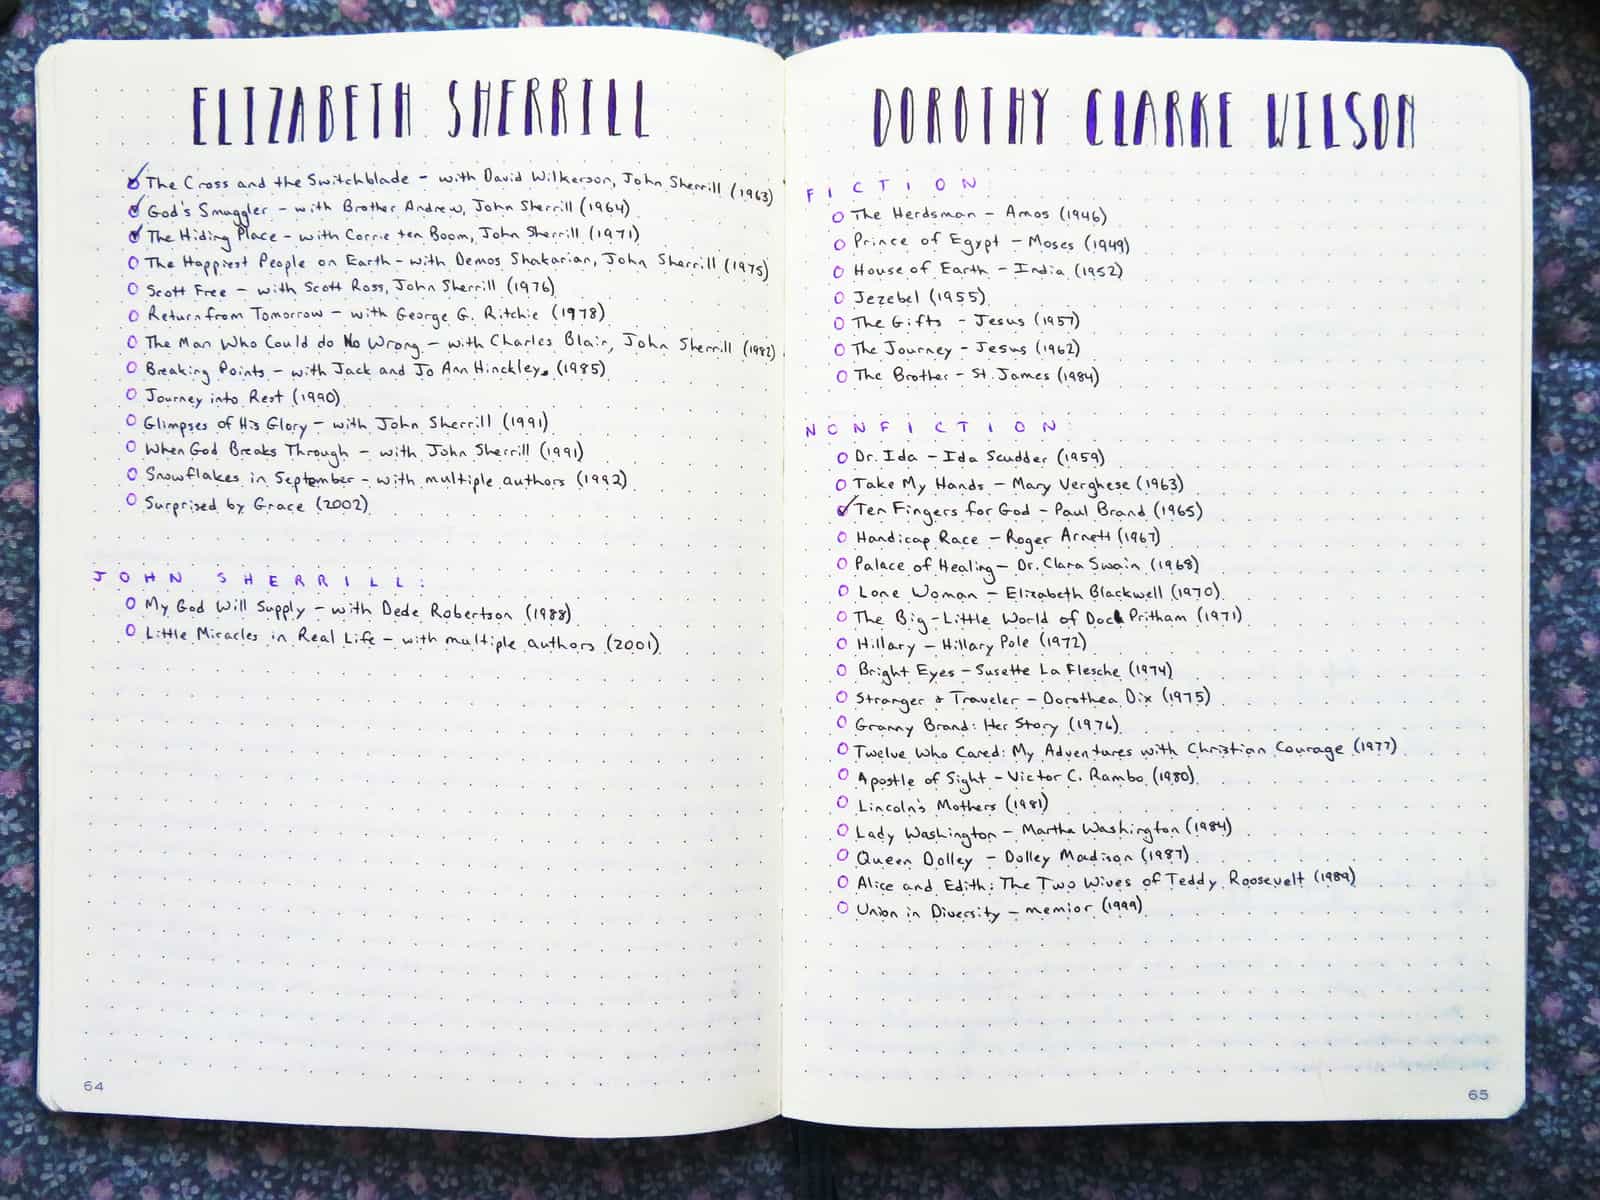 ELIZABETH SHERRILL
The Cross and the Switchblade - with David Wilkerson, John Sherrill (1963)
God's Smuggler - with Brother Andrew, John Sherrill (1964)
The Hiding Place - with Corrie ten Boom, John Sherrill (1971)
The Happiest People on Earth - with Demos Shakarian, John Sherrill (1975)
Scott Free - with Scott Ross, John Sherrill (1976)
Return from Tomorrow - with George G. Ritchie (1978)
The Man Who Could do No Wrong - with Charles Blair, John Sherrill (1982)
Breaking Points - with Jack and Jo Ann Hinckley. (1985)
Journey into Rest (1990)
Glimpses of His Glory - with John Sherrill (1991)
When God Breaks Through - with John Sherrill (1991)
Snowflakes in September - with multiple authors (1992)
Surprised by Grace (2002)
JOHN SHERRILL:
My God Will Supply - with Dede Robertson (1988)
Little Miracles in Real Life - with multiple authors (2001)
64
DOROTHY CLARKE WILSON
FICTION:
The Herdsman - Amos (1946)
Prince of Egypt - Moses (1949)
House of Earth - India (1952)
Jezebel (1955)
The Gifts - Jesus (1957)
The Journey - Jesus (1962)
The Brother - St. James (1984)
NONFICTION:
Dr. Ida - Ida Scudder (1959)
Take My Hands - Mary Verghese (1963)
Ten Fingers for God - Paul Brand (1965)
Handicap Race - Roger Arnett (1967)
Palace of Healing - Dr. Clara Swain (1968)
Lone Woman - Elizabeth Blackwell (1970)
The Big-Little World of Doc Pritham (1971)
Hillary - Hillary Pole (1972)
Bright Eyes - Susette La Flesche (1974)
Stranger & Traveler - Dorothea Dix (1975)
Granny Brand: Her Story (1976)
Twelve Who Cared: My Adventures with Christian Courage (1977)
Apostle of Sight - Victor C. Rambo (1980)
Lincoln's Mothers (1981)
Lady Washington - Martha Washington (1984)
Queen Dolley - Dolley Madison (1987)
Alice and Edith: The Two Wives of Teddy Roosevelt (1989)
Union in Diversity - memior (1999)
65